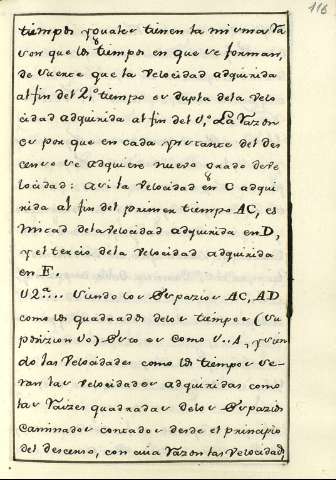 116
tiempos yguales tienen la misma Ra
zon que los tiempos en que se forman,
de suerte que la Velocidad adquirida
al fin del 2.º tiempo es dupla dela Velo
cidad adquirida al fin del 1.º La Razon
es por que en cada ynstante del des
censo se adquiere nuevo grado de Ve
locidad: asi la Velocidad en C adqui
rida al fin del primer tiempo AC, es
mitad dela Velocidad adquirida en D,
y el tercio dela Velocidad adquirida
en E.
2ª.... siendo los Espazios AC, AD
como los quadrados delos tiempos (su
posizion) Esto es como 1..4, y sien
do las Velocidades como los tiempos se
ran las Velocidades adquiridas como
las Raizes quadradas delos Espazios
caminados contados desde el principio
del descenso, con cuia Razon las Velocidad,